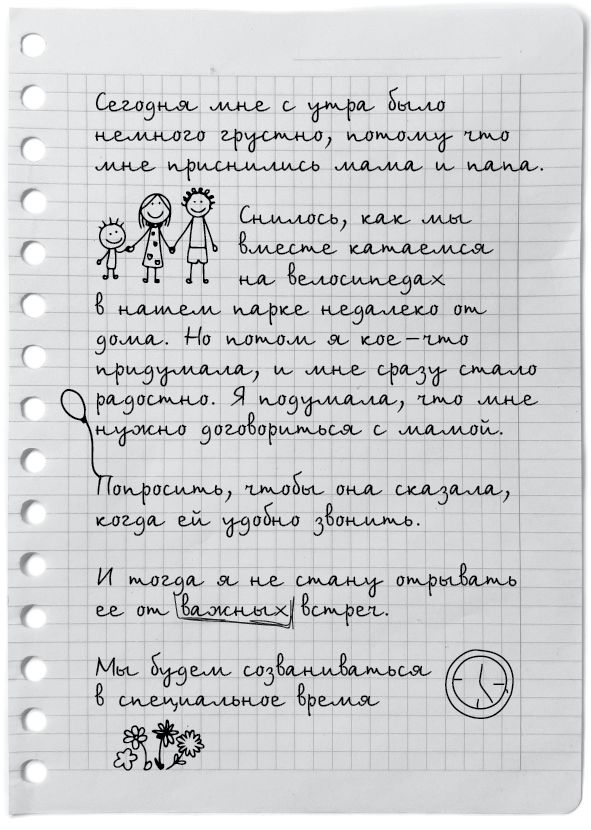 Сегодня мне с утра было
немного грустно, потому что
мне приснились мама и папа.
Снилось, как мы
вместе катаемся
на велосипедах
в нашем парке недалеко от
дома. Но потом я кое-что
придумала, и мне сразу стало
радостно. Я подумала, что мне
нужно договориться с мамой.
Попросить, чтобы она сказала,
когда ей удобно звонить.
И тогда я не стану отрывать
ее от важных встреч.
Мы будем созваниваться
в специальное время